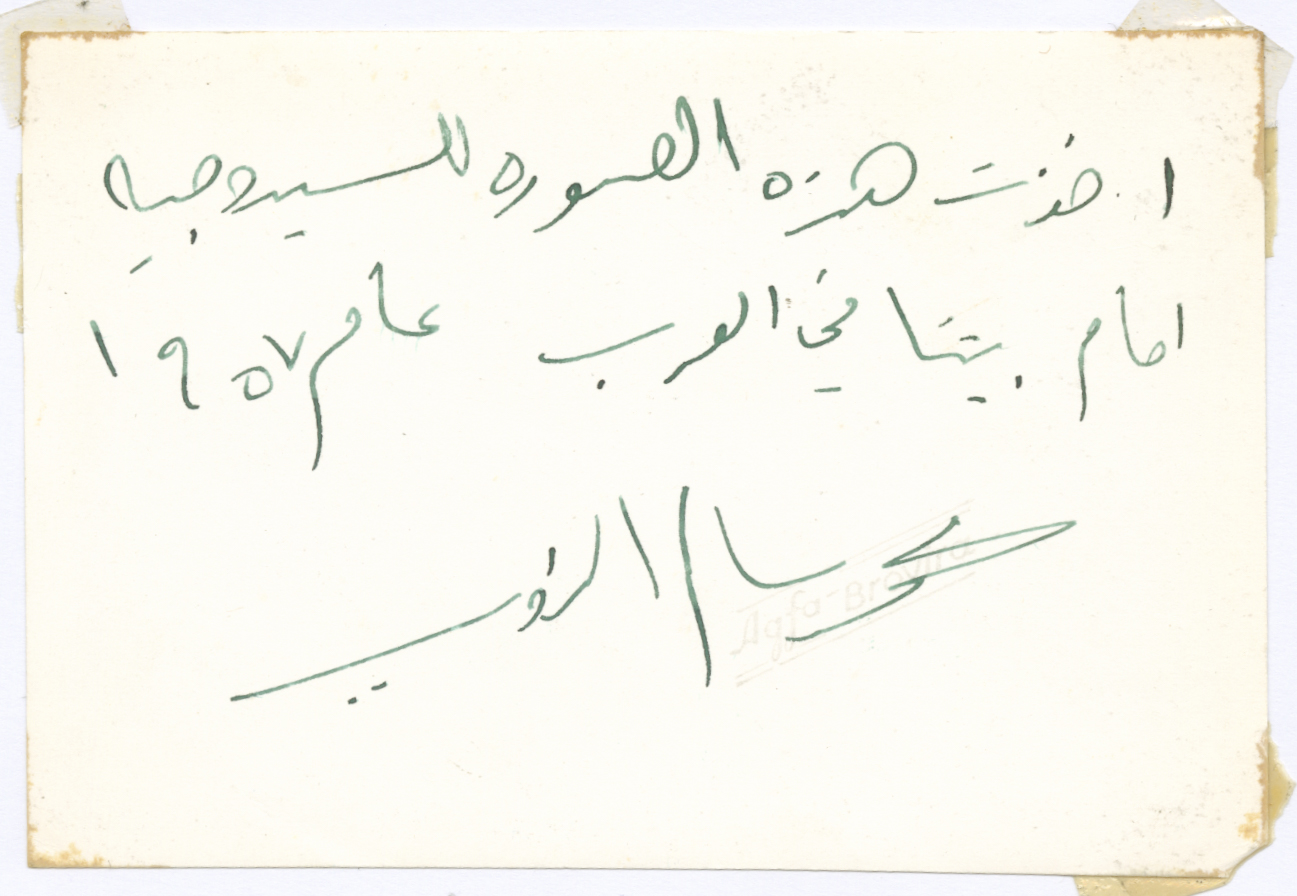 اخذت هذه الصوره للسيد وجيه
امام بيتنا في العرب عام ١٩٥٧
حسام الذويب
Agfa-Brovira